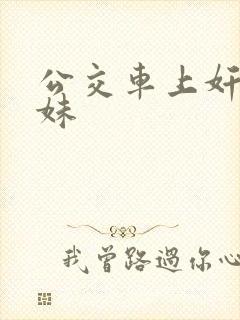 公交車上奸
妹
我曾路過你心